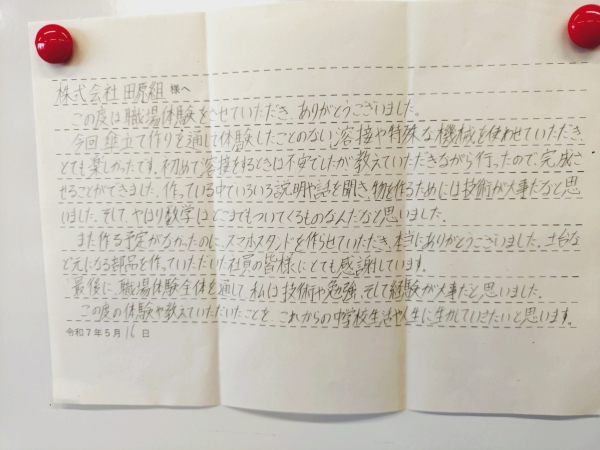 株式会社 田原組 様へ
この度は職場体験をさせていただき、ありがとうございました。
今回 傘立て作りを通して体験したことのない溶接や特殊な機械を使わせていただき
とても楽しかったです。初めて溶接をするときは不安でしたが教えていただきながら行ったので、完成さ
せることができました。作っている中でいろいろ説明や話を聞き、物を作るためには技術が大事だなと思
いました。そして、やはり数学はどこまでもついてくるものなんだなと思いました。
また作る予定がなかったのに、スマホスタンドを作らせていただき、本当にありがとうございました。土台な
ど元になる部品を作っていただいた社員の皆様にとても感謝しています。
最後に、職場体験全体を通して、私は技術や勉強、そして経験が大事だと思いました。
この度の体験や教えていただいたことを、これからの中学校生活や人生に生かしていきたいと思います。
令和7年5月16日